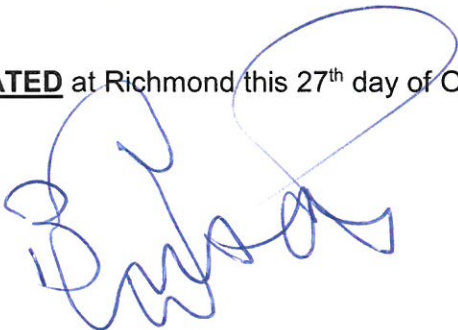 ATED at Richmond this 27th day of O